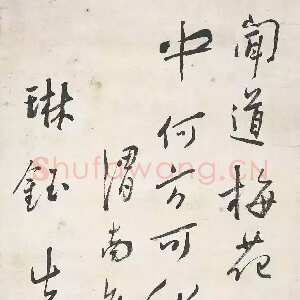 聞道梅花
中何方可
渭南
琳鈺
Shufawang.CN